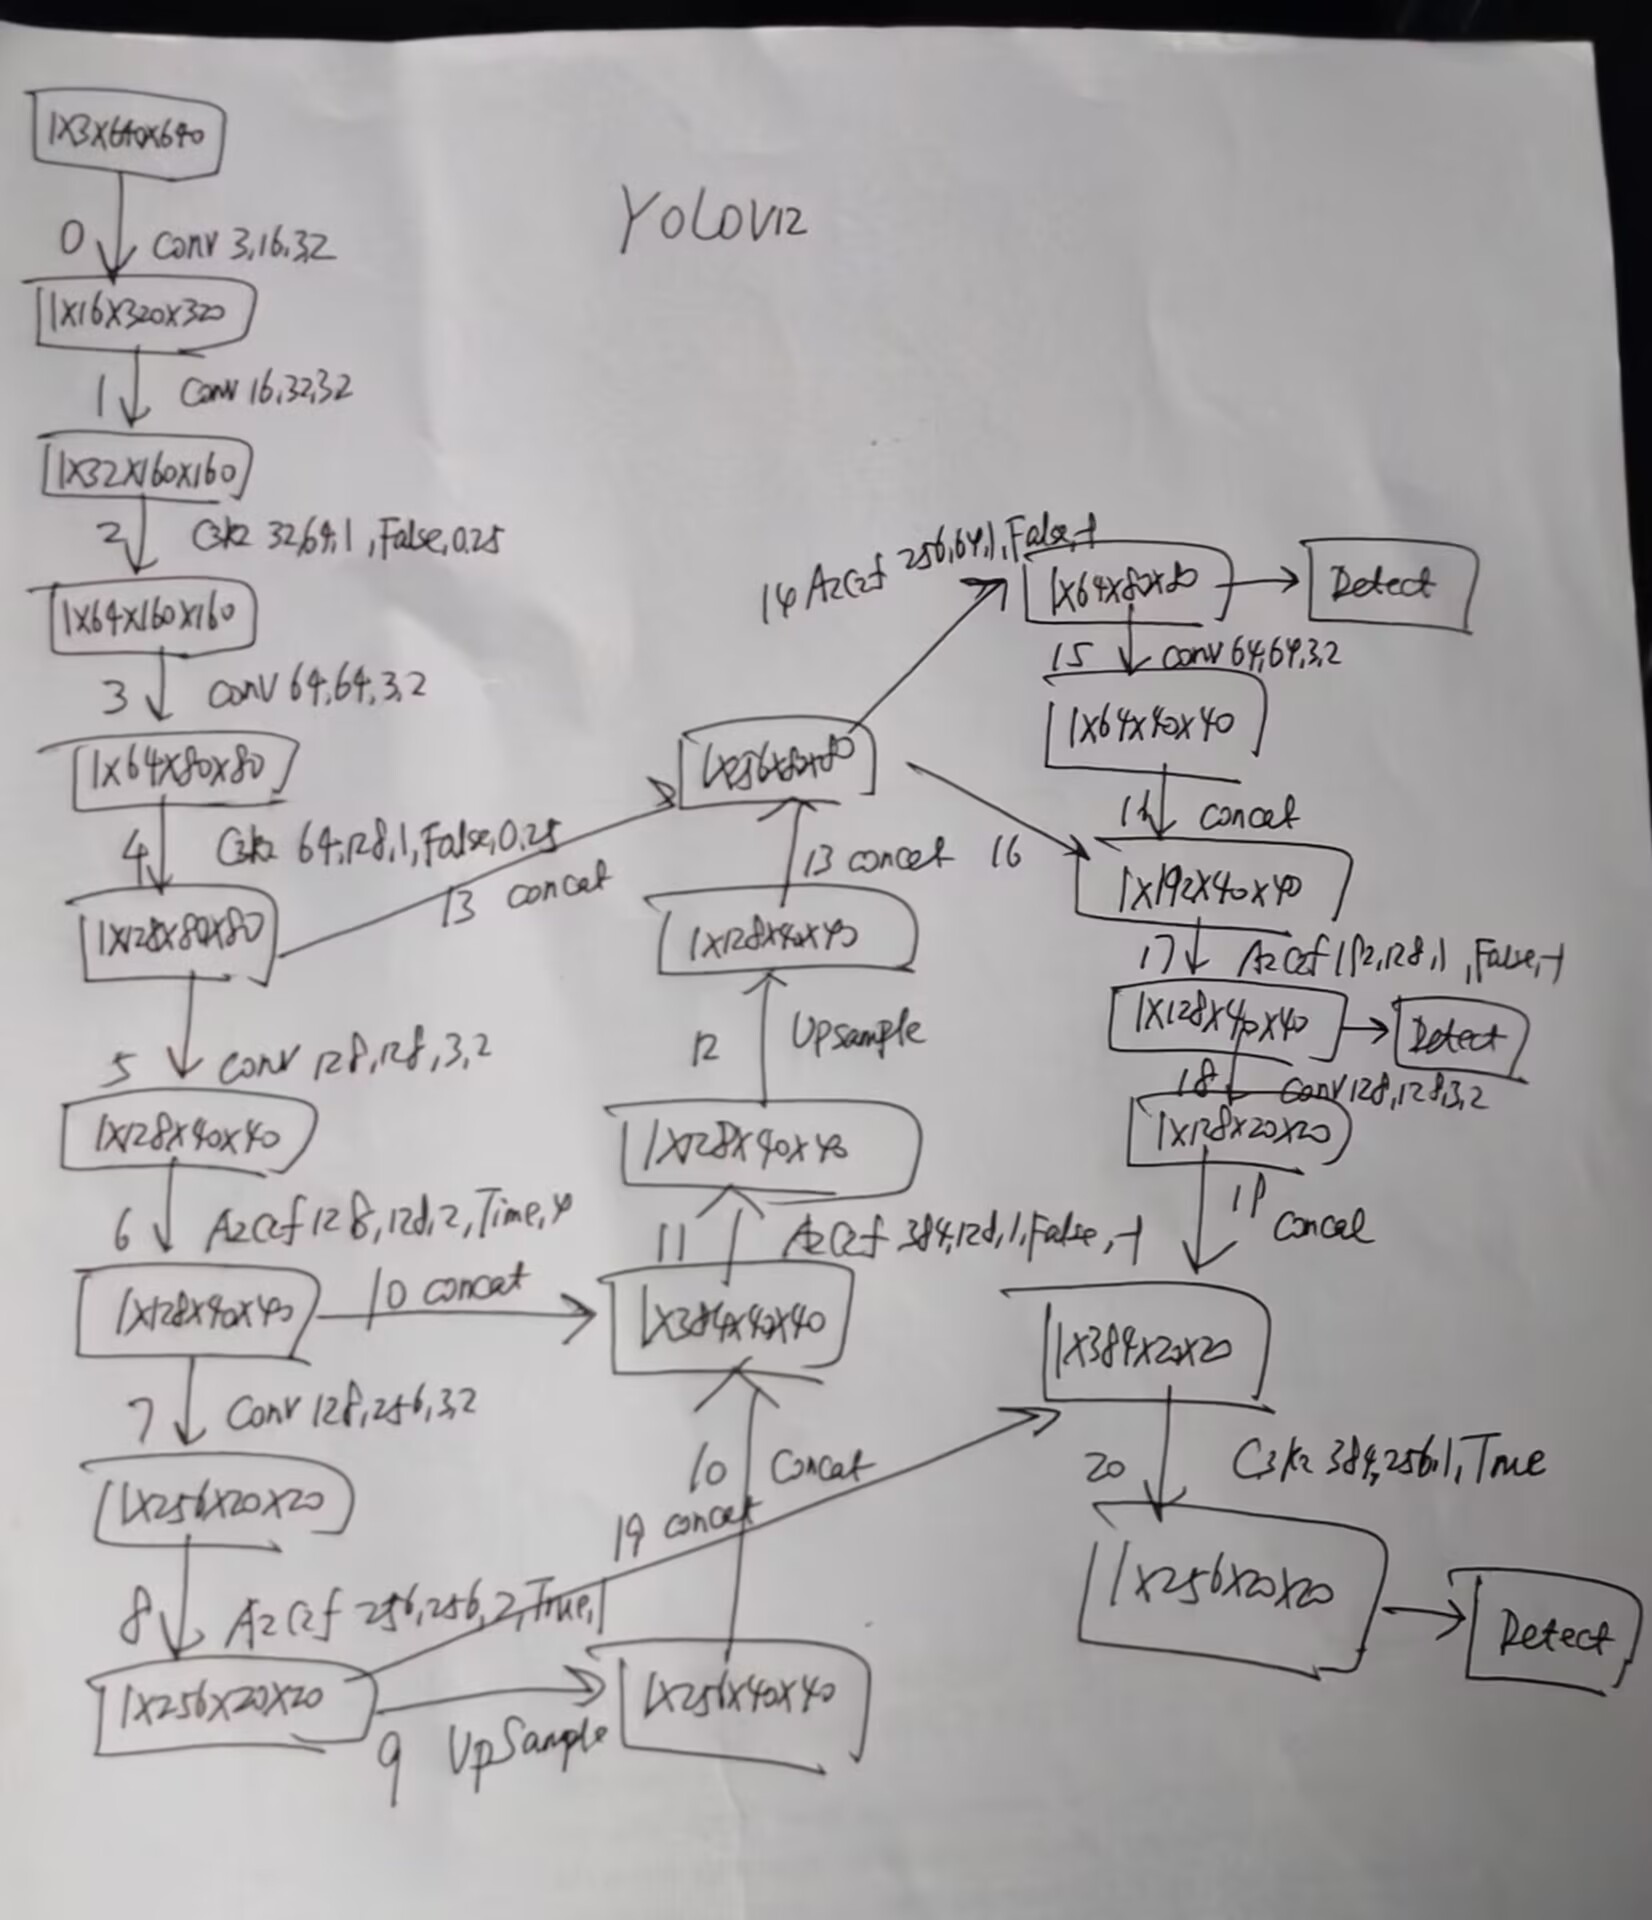 YOLOV12
1X3X640X640
0 Conv 3,16,3,2
1X16X320X320
1 Conv 16,32,3,2
1X32X160X160
2 C3k2 32,64,1,False,0.25
1X64X160X160
3 conv 64,64,3,2
1X64X80X80
4 C3k2 64,128,1,False,0.25
13 concat
1X128X80X80
5 conv 128,128,3,2
1X128X40X40
6 A2C2f 128,128,2,Time,4
1X128X40X40
10 concat
7 Conv 128,256,3,2
1X256X20X20
8 A2C2f 256,256,2,True,1
1X256X20X20
9 UpSample
1X256X40X40
19 concat
10 Concat
1X384X40X40
11 A2C2f 384,128,1,False,-1
1X128X40X40
12 Upsample
1X128X40X40
13 concat
1X256X80X80
14 A2C2f 256,64,1,False,-1
1X64X80X80
Detect
15 conv 64,64,3,2
1X64X40X40
16 concat
16
1X192X40X40
17 A2C2f 192,128,1,False,-1
1X128X40X40
Detect
18 conv 128,128,3,2
1X128X20X20
19 Concat
1X384X20X20
20 C3k2 384,256,1,True
1X256X20X20
Detect